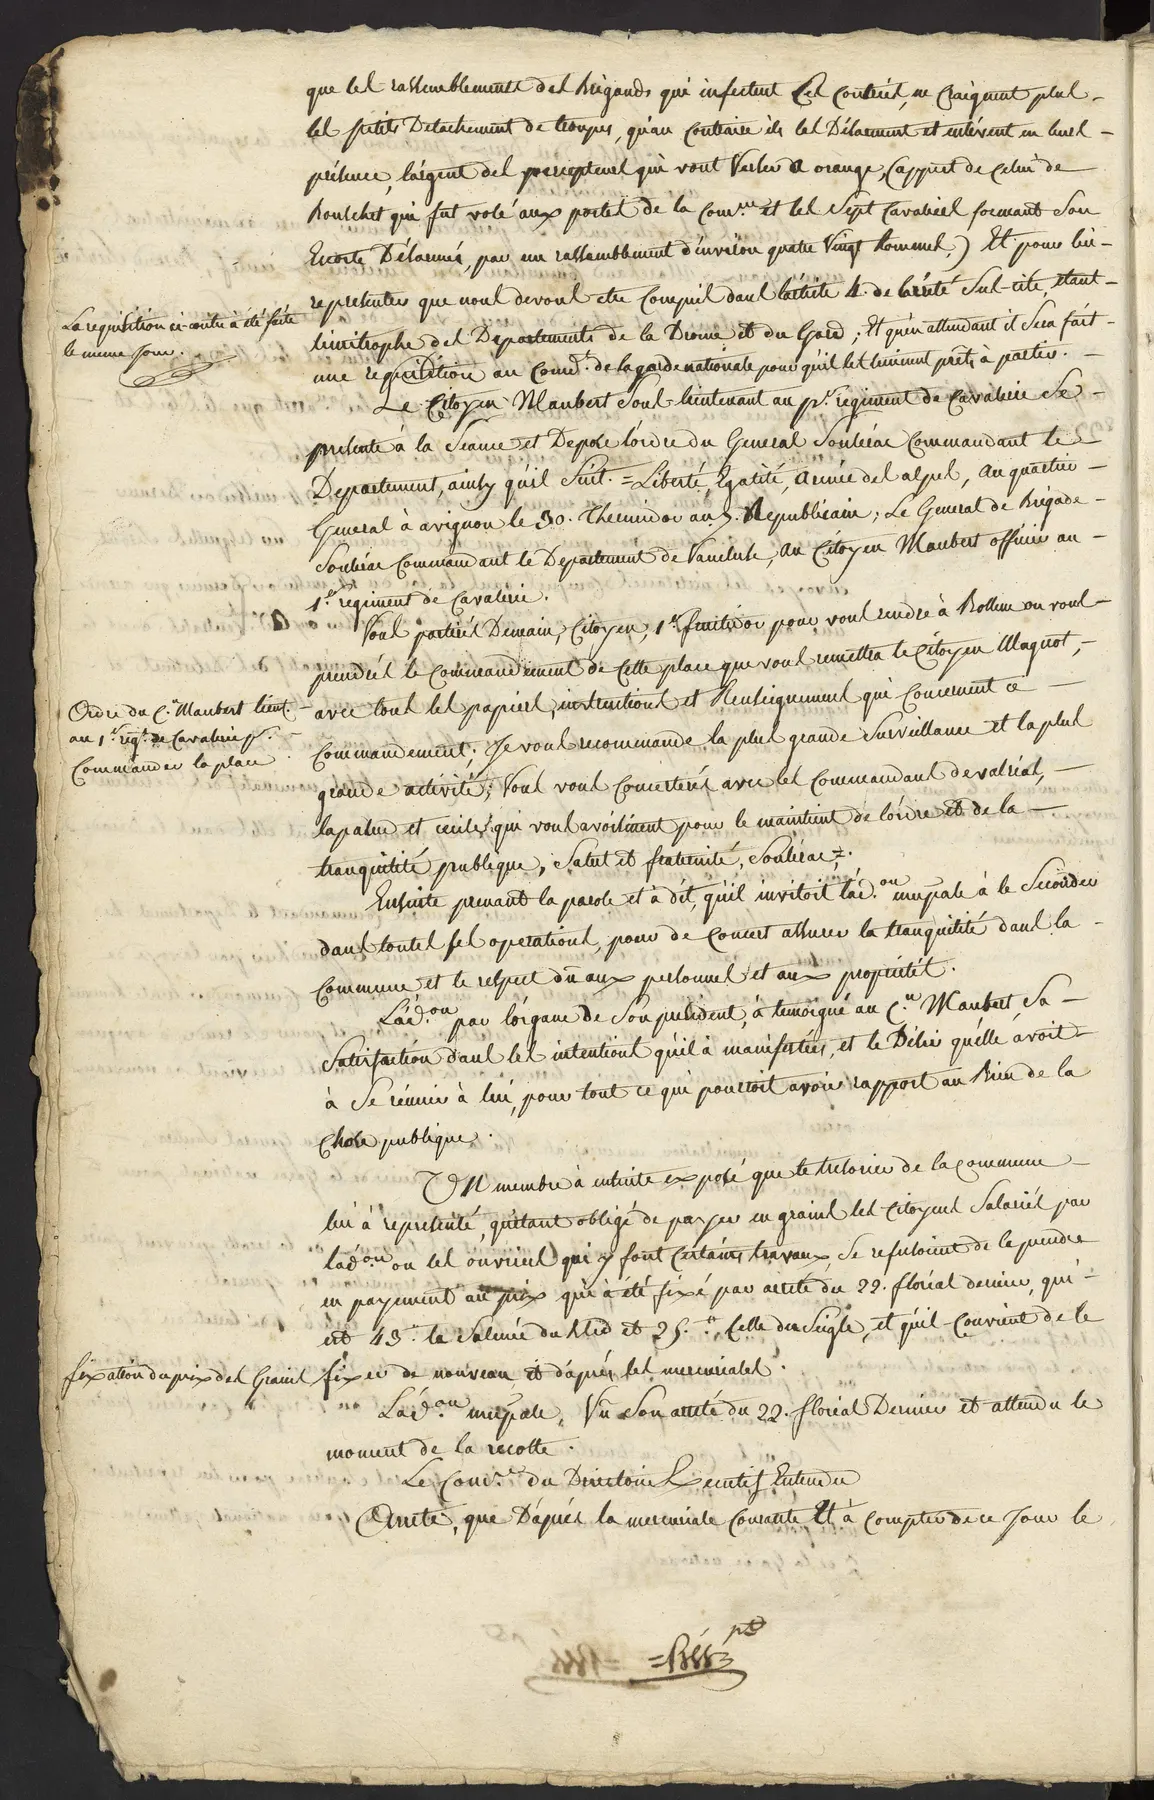 que les rassemblements des Brigands qui infestent Ces Contrées, ne Craignent plus
les petits Detachement de troupes, qu'au Contraire ils les Désarment et enlévent en leur
présence, l'argent des percepteurs qui vont Verser a orange, (appert de Celui de
Bouschet qui fut volé aux portes de la Com.ne et les Sept Cavaliers formant Son
Escorte Désarmés, par un rassemblement d'environ quatre Vingt hommes,) Et pour lui
representer que nous devons etre Compris dans l'article 4. de l'arrêté Sus-cité, etant
limitrophe des Departements de la Drome et du Gard; Et qu'en attendant il Sera fait
une requisition au Comd.t de la garde nationale pour qu'il les tiennent prêts à partir.
La requisition ci-contre à été faite
le meme jour.
Le Citoyen Maubert Sous-lieutenant au p.r regiment de Cavalerie Se
presente à la Seance et Depose l'ordre du General Souhérac Commandant le
Departement, ainsy qu'il Suit. = Liberté, Egalité, Armée des alpes, Au quartier
General à avignon le 30. Thermidor an 5. Republicain; Le General de Brigade
Commandant le Departement de Vaucluse, Au Citoyen Maubert officier au
1.er regiment de Cavalerie.
Vous partirés Demain, Citoyen, 1.er fructidor pour vous rendre à Bollene ou vous
prendrés le Commandement de Cette place que vous remettra le Citoyen Magnot,
avec tous les papiers, instructions et Renseignemens qui Concernent ce
Commandement; Je vous recommande la plus grande Surveillance et la plus
grande activité; Vous vous Concerterés avec les Commandans de valréas,
lapalud et ceux qui vous avoisinent pour le maintient de l'ordre et de la
tranquilité publique, Salut et fraternité,
Ordre du C.n Maubert lieut.
au 1.r reg.t de Cavalerie p.r
Commander la place
Ensuite prenant la parole et à dit, qu'il invitoit l'ad.on mupale à le Seconder
dans toutes ses operations, pour de Concert assurer la tranquilité dans la
Commune et le respect dû aux personnes et aux propriétés.
L'ad.on par l'organe de Son president, à temoigné au C.en Maubert Sa
Satisfaction dans les intentions qu'il à manifestées, et le Désir qu'elle avoit
à Se réunir à lui, pour tout ce qui pourroit avoir rapport au Bien de la
Chose publique.
Un membre à ensuite exposé que le tresorier de la Commune
lui à representé, qu'etant obligé de payer en grains les Citoyens Salariés par
l'ad.on ou les ouvriers qui y font Certains travaux, Se refusoint de le prendre
en payement au prix qui à été fixé par arrêté du 22. floréal dernier, qui
est 43.# la Salmée du bled et 25.# Celle du Seigle, et qu'il Convient de le
fixer de nouveau et d'aprés les mercuriales.
fixation du prix des Grains
L'ad.on mupale, Vû Son arrêté du 22. floréal Dernier et attendu le
moment de la recolte.
Le Com.re du Directoire Executif Entendu
Arrête, que D'aprés la mercuriale Courante Et à Compter de ce Jour le